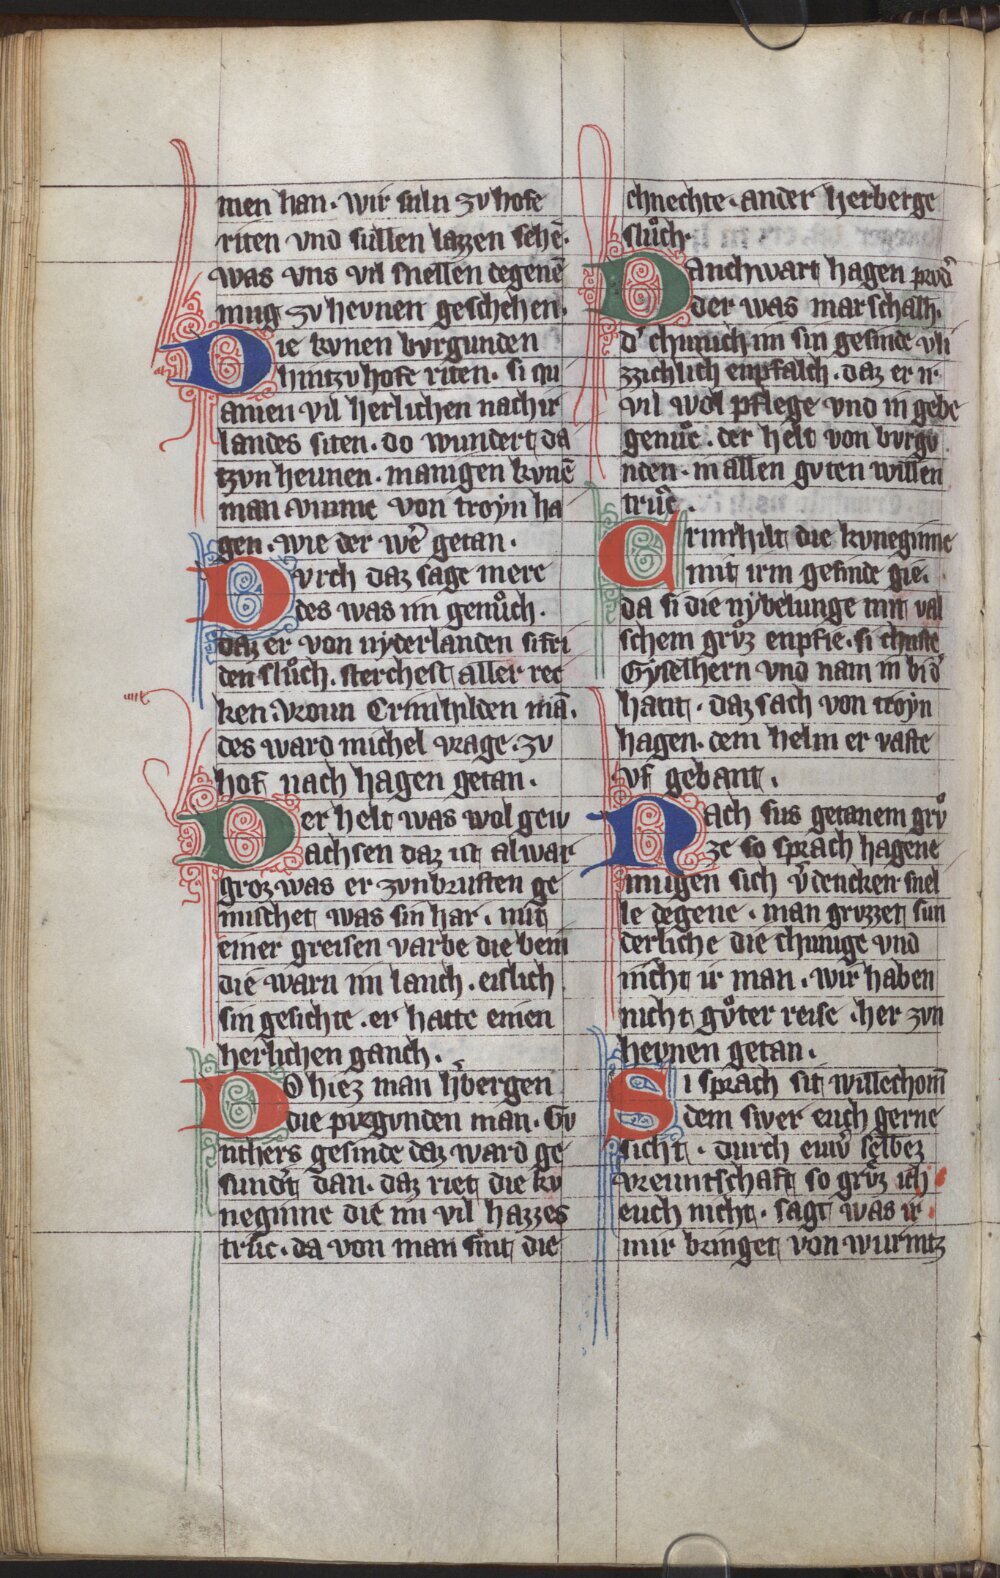 men han. wir suln zv hofe
riten vnd sullen lazzen sehē.
was vns vil snellen degenē
mug zv hevnen geschehen.
Die kvnen bvrgunden
hintzv hofe riten. si qu
amen vil herlichen nach ir
landes siten. do wundert da
tzvn heunen. manigen kvnē
man vmme von troyn ha
gen. wie der we͛ getan.
Dvrch daz sage mere
des was im genůch.
daz er von nyderlanden sifri
den slůch. sterchest aller rec
ken. vroun Crimhilden mā.
des ward michel vrage. zv
hof nach hagen getan.
Der helt was wol gew
achsen daz ist alwar
groz was er zvn brusten ge
mischet was sin har. mit
einer greisen varbe die bein
die warn im lanch. eislich
sin gesichte. er hatte einen
herlichen ganch.
Do hiez man h͛bergen
die pvrgvnden man. Gv
nthers gesinde daz ward ge
sund͛t dan. daz riet die kv
neginne die im vil hazzes
trůc. da von man sint die
chnechte. ander herberge
slůch.
Danchwart hagen prvd͛
der was marschalh.
d͛ chunich im sin gesinde vli
zzichlich enpfalch. daz er ir
vil wol pflege vnd in gebe
genůc. der helt von bvrgv
nden. in allen gvten willen
trůc.
Crimhilt die kvneginne
mit irm gesinde gie.
da si die nybelunge mit val
schem grůz enpfie. si chuste
Gyselhern vnd nam in bi d͛
hant. daz sach von troyn
hagen. dem helm er vaste
vf gebant.
Nach sus getanem grv̊
ze so sprach hagene
mugen sich v͛dencken snel
le degene. man gruzzet sun
derliche die chunige vnd
nicht ir man. wir haben
nicht gůter reise. her zvn
hevnen getan.
Si sprach sit willechom̄
dem swer euch gerne
sicht. durch ew͛ selbez
vreuntschaft so grůz ich
euch nicht. sagt was ir
mir bringet von wurmtz